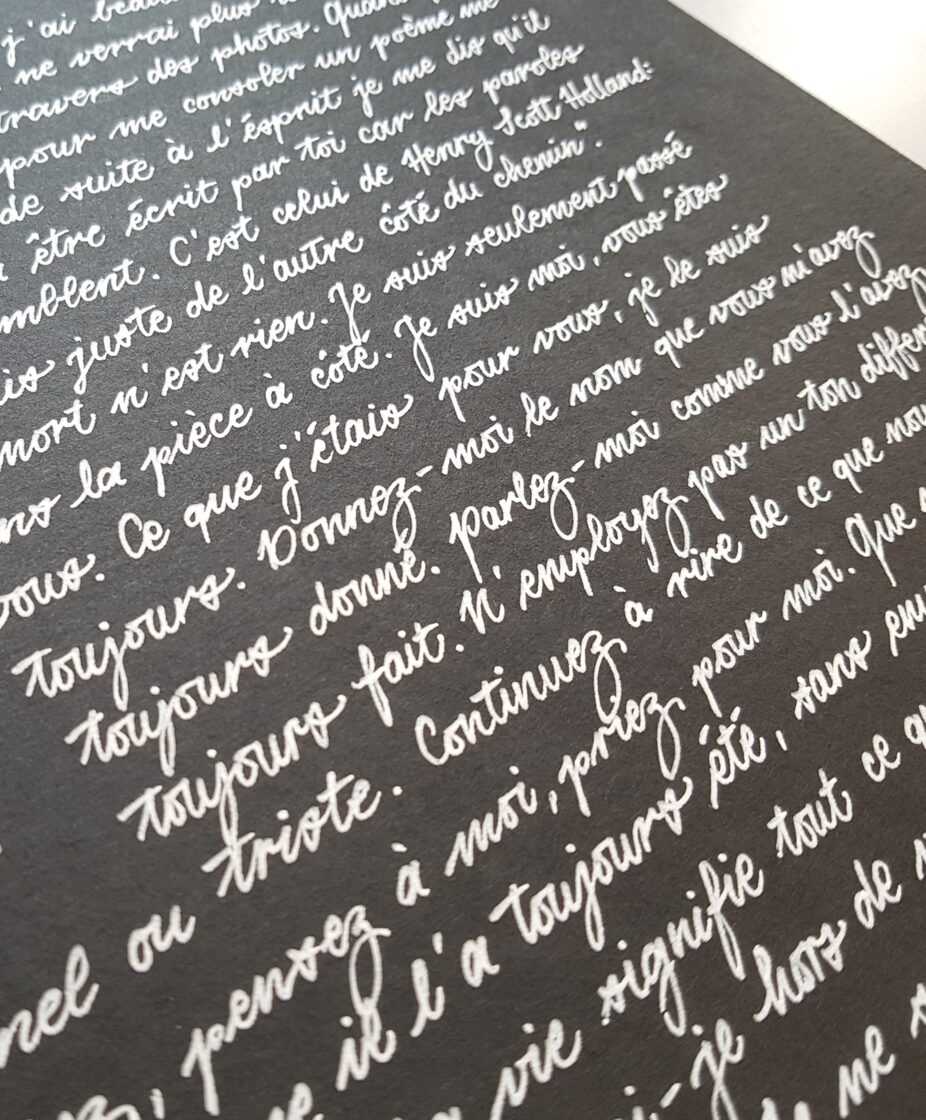 j'ai
ne verrai plus
travers des photos.
pour me consoler un poème me
de suite à l'ésprit je me dis qu'il
être écrit par toi car les paroles
mblent. C'est celui de Henry Scott Holland:
is juste de l'autre côté du chemin".
mort n'est rien. Je suis seulement passé
ns la pièce à côté. Je suis moi, vous êtes
vous. Ce que j'étais pour vous, je le suis
toujours. Donnez-moi le nom que vous m'avez
toujours donné. parlez-moi comme vous l'avez
toujours fait. N'employez pas un ton différen
nel ou triste. Continuez à rire de ce que nou
z, pensez à moi, priez pour moi. Que
e il l'a toujours été, sans em
vie signifie tout ce q
i-je hors de
ne